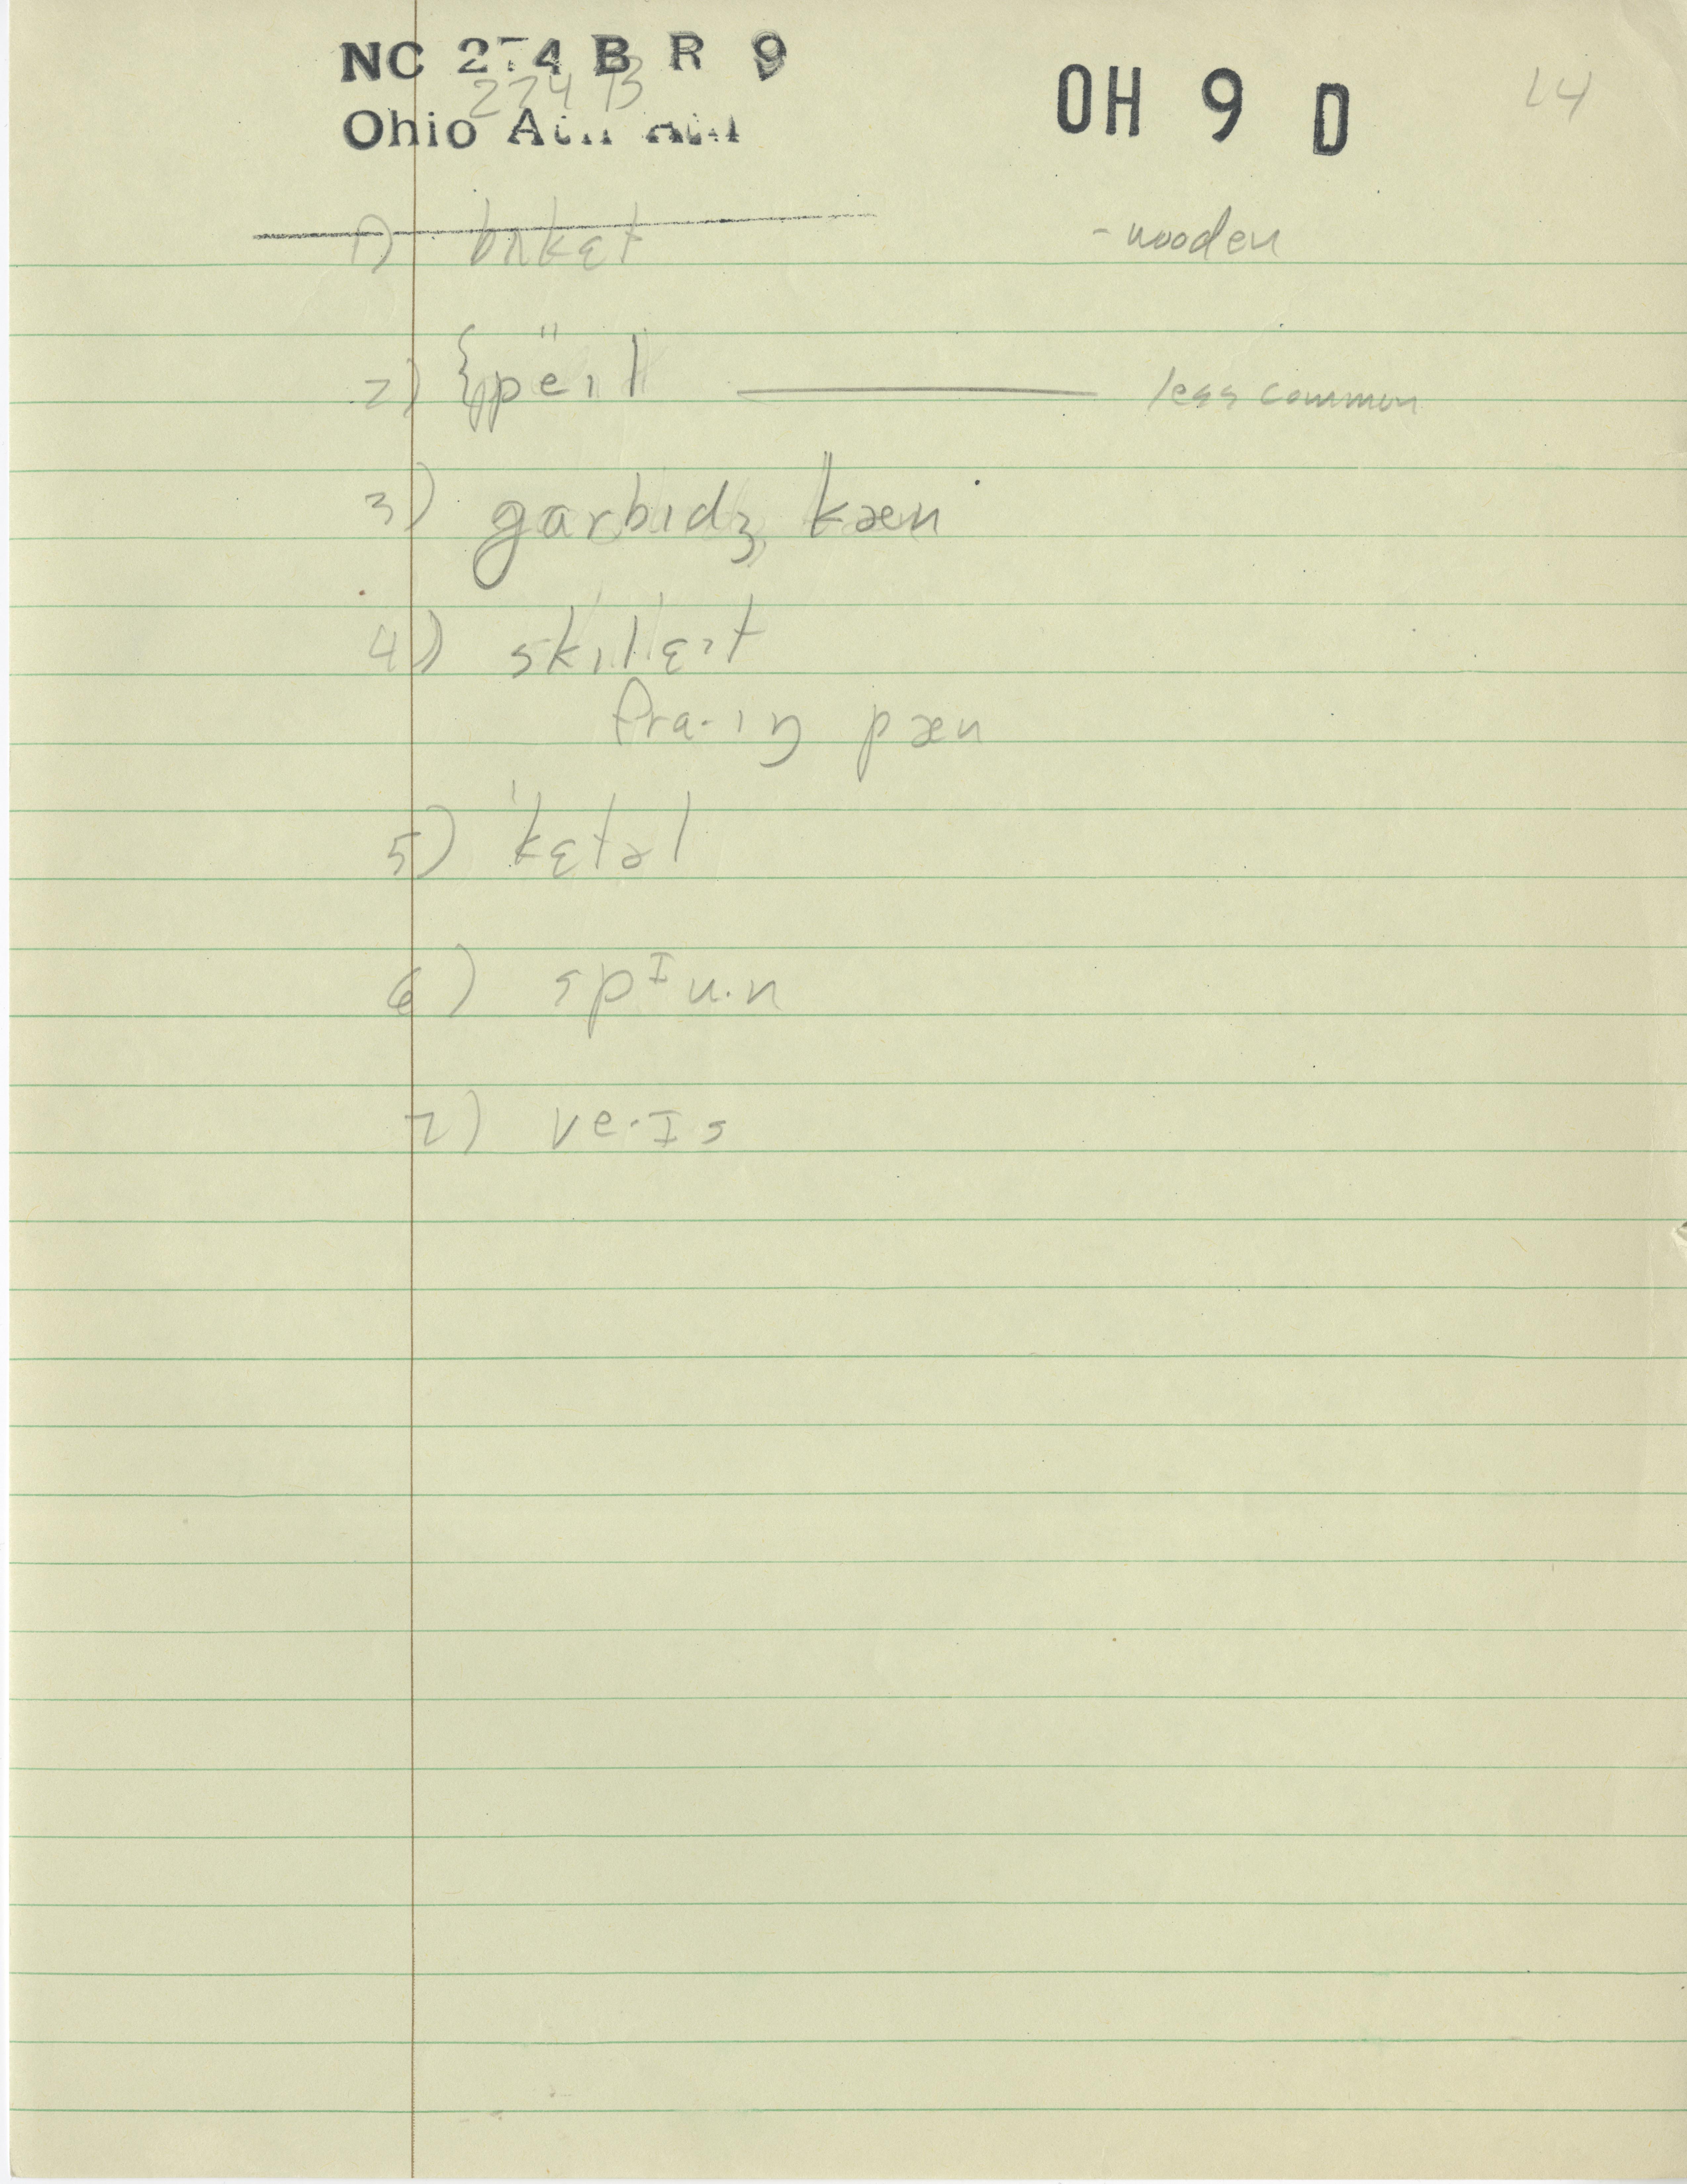 NC 274 B R 9
274 B
Ohio
OH 9 D
14
1) bʌkɛt - wooden
2) {pëıl less common
3) garbıdʒ kæn
4) skıllɛɪt
fra·ıŋ pæn
5) kɛtəl
6) spᴵu·n
7) ve·ɪs